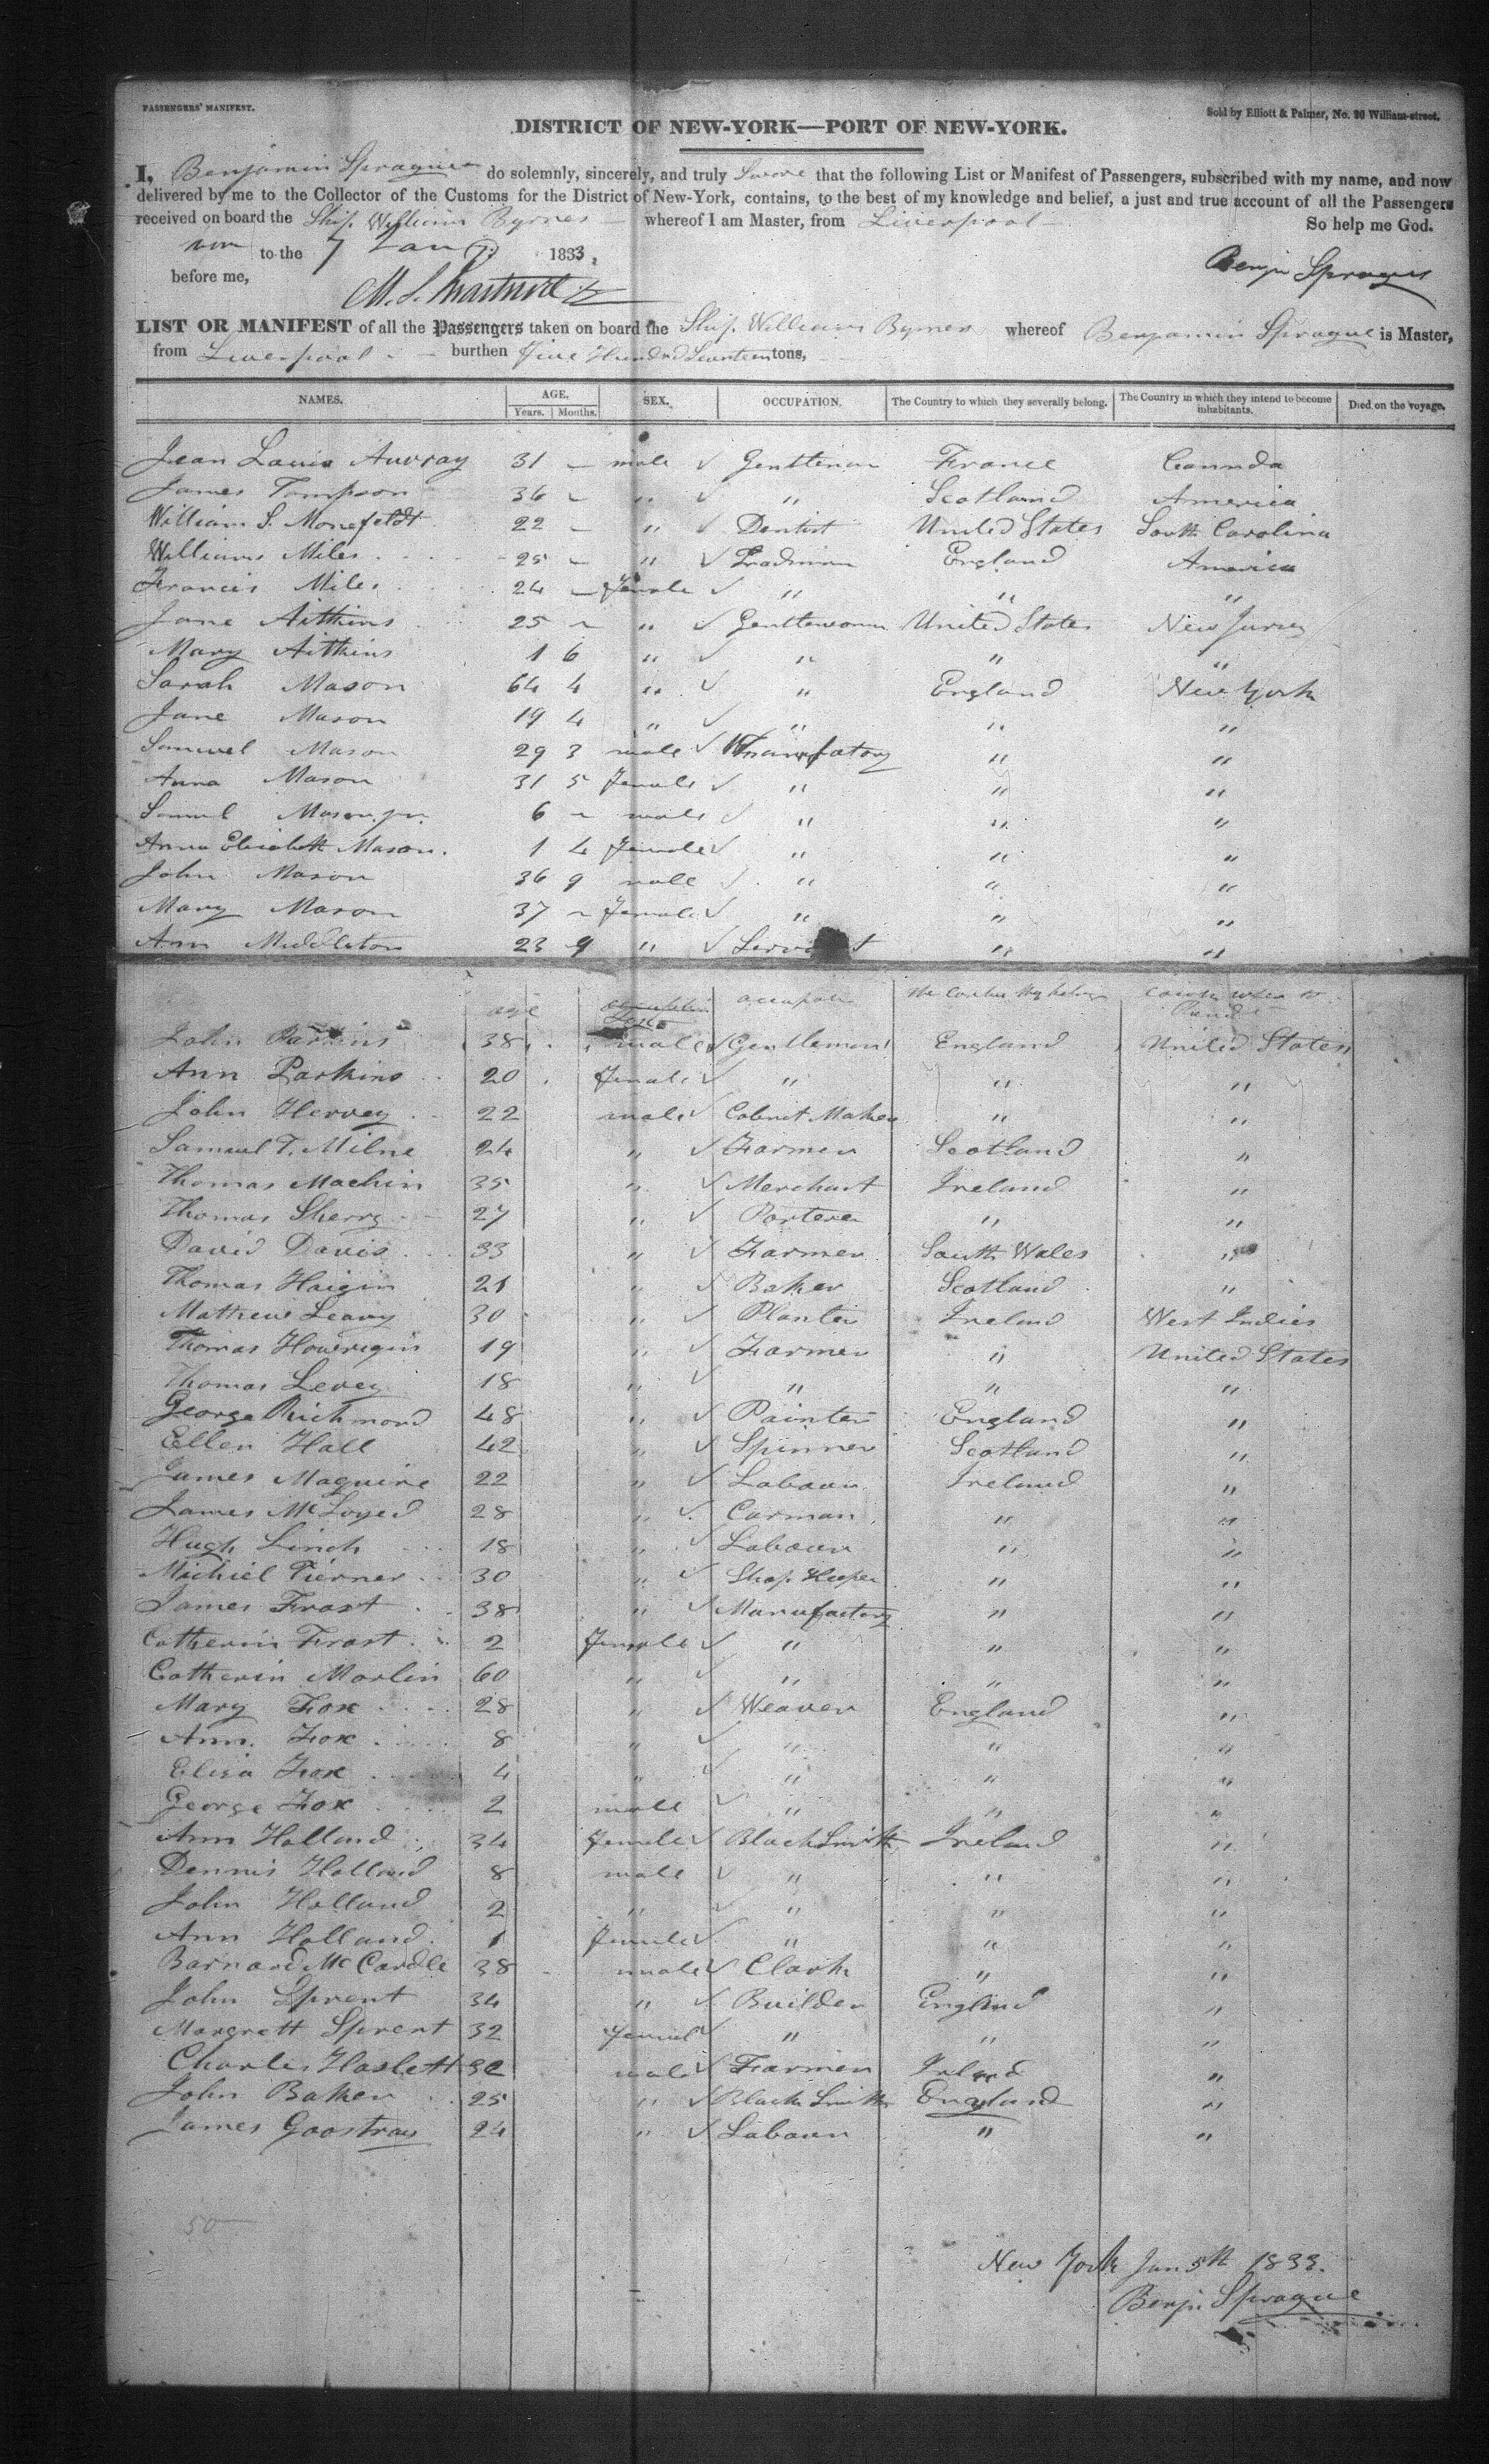 PASSENGERS' MANIFEST.
Sold by Elliott & Palmer, No. 20 William-street.
DISTRICT OF NEW-YORK—PORT OF NEW-YORK.
I, Benjamin Sprague do solemnly, sincerely, and truly Swore that the following List or Manifest of Passengers, subscribed with my name, and now
delivered by me to the Collector of the Customs for the District of New-York, contains, to the best of my knowledge and belief, a just and true account of all the Passengers
received on board the Ship William Byrnes whereof I am Master, from Liverpool
So help me God.
to the 7 Jany 1833,
before me,
Benj Sprague
LIST OR MANIFEST of all the Passengers taken on board the Ship William Byrnes whereof Benjamin Sprague is Master,
from Liverpool burthen Five Hundred Seventeen tons,
NAMES. AGE. SEX. OCCUPATION. The Country to which they severally belong. The Country in which they intend to become inhabitants. Died on the voyage.
Years. Months.
Jean Louis Auvray 31 – male ✓ Gentleman France Cannda
James Tompson 36 – " ✓ " Scotland America
William S. Monefeldt 22 – " ✓ Dentist United States South Carolina
William Miles 25 – " ✓ Tradsman England America
Francis Miles 24 – Female ✓ " " "
Jane Aitkins 25 – " ✓ Gentlewoman United States New Jursey
Mary Aitkins 1 6 " ✓ " " "
Sarah Mason 64 4 " ✓ " England New York
Jane Mason 19 4 " ✓ " " "
Samuel Mason 29 3 male ✓ Manufatory " "
Anna Mason 31 5 Female ✓ " " "
Samuel Mason jr. 6 – male ✓ " " "
Anna Elizabeth Mason. 1 4 Female ✓ " " "
John Mason 36 9 male ✓ " " "
Mary Mason 37 – Female ✓ " " "
Ann Middleton 23 9 " ✓ Servant " "
age occupation
John Parkins 38 male ✓ Gentleman England United States
Ann Parkins 20 Female ✓ " " "
John Hervey 22 male ✓ Cabinet Maker " "
Samuel T. Milne 24 " ✓ Farmer Scotland "
Thomas Machin 35 " ✓ Merchant Ireland "
Thomas Sherry 27 " ✓ Porterer " "
David Davis 33 " ✓ Farmer South Wales "
Thomas Haigin 21 " ✓ Baker Scotland "
Mathew Leavy 30 " ✓ Planter Ireland West Indies
Thomas Howrigin 19 " ✓ Farmer " United States
Thomas Levey 18 " ✓ " " "
George Richmond 48 " ✓ Painter England "
Ellen Hall 42 " ✓ Spinner Scotland "
James Maguire 22 " ✓ Labour Ireland "
James McLoyed 28 " ✓ Carman " "
Hugh Linch 18 " ✓ Labour " "
Michiel Tierner 30 " ✓ Shop Keeper " "
James Frost 38 " ✓ Manufactory " "
Catherin Frost 2 Female ✓ " " "
Catherin Marlin 60 " ✓ " " "
Mary Fox 28 " ✓ Weaver England "
Ann. Fox 8 " ✓ " " "
Eliza Fox 4 " ✓ " " "
George Fox 2 male ✓ " " "
Ann Holland 34 Female ✓ Black Smith Ireland "
Dennis Holland 8 male ✓ " " "
John Holland 2 " ✓ " " "
Ann Holland 1 Female ✓ " " "
Barnard McCardle 38 male ✓ Clark " "
John Sprent 34 " ✓ Builder England "
Margrett Sprent 32 Femal ✓ " " "
Charles Haslett 32 male ✓ Farmer Irland "
John Baker 25 " ✓ Black Smith England "
James Goostray 24 " ✓ Labour " "
50
New York Jan 5th 1833.
Benj. Sprague